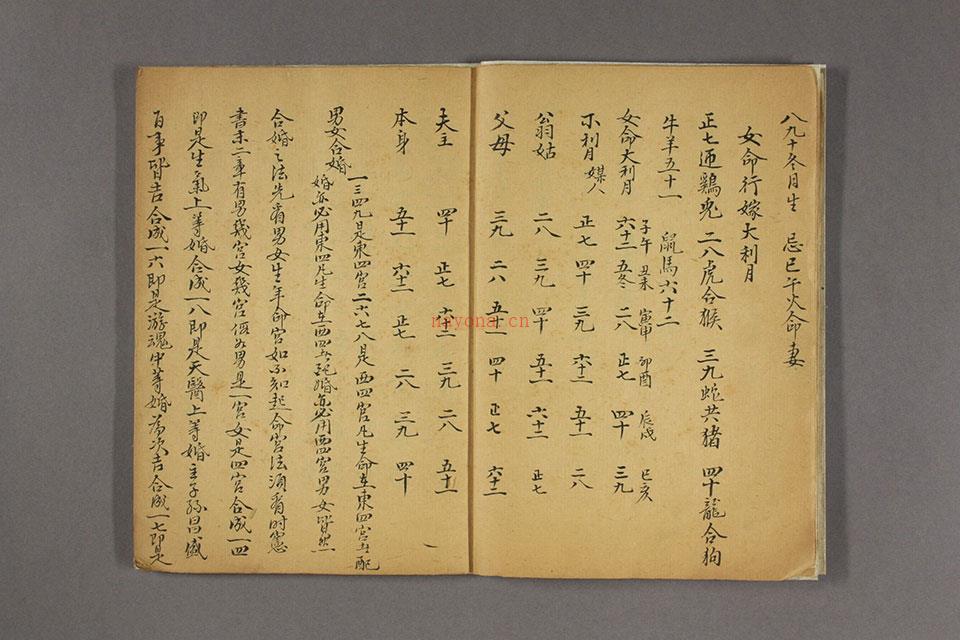 八九十冬月生　忌巳午火命妻
女命行嫁大利月
正七迎鷄兎　二八虎合猴　三九蛇共猪　四十龍合狗
牛羊五十一　鼠馬六十二
女命大利月　子午　丑未　寅申　卯酉　辰戌　巳亥
六十二　五冬　二八　正七　四十　三九
不利月　媒人　正七　四十　三九　六十二　五十一　二八
公翁姑　二八　三九　四十　五十一　六十二　正七
父母　三九　二八　五十一　四十　正七　六十二
夫主　四十　正七　六十二　三九　二八　五十一
本身　五十一　六十二　正七　二八　三九　四十
男女合婚　一三四九是東四宮二六七八是西四宮凡生命在東四宮者配
婚亦必用東四凡生命在西四者配婚亦必用西四宮男女皆然
合婚之法先看男女生年命宮如不知起命宮法須看时憲
書末二章有男幾宮女幾宮假如男是一宮女是四宮合成一四
即是生氣上等婚合成一八即是天醫上等婚主子孫昌盛
百事皆吉合成一六即是游魂中等婚為次吉合成一七即是
nayona.cn